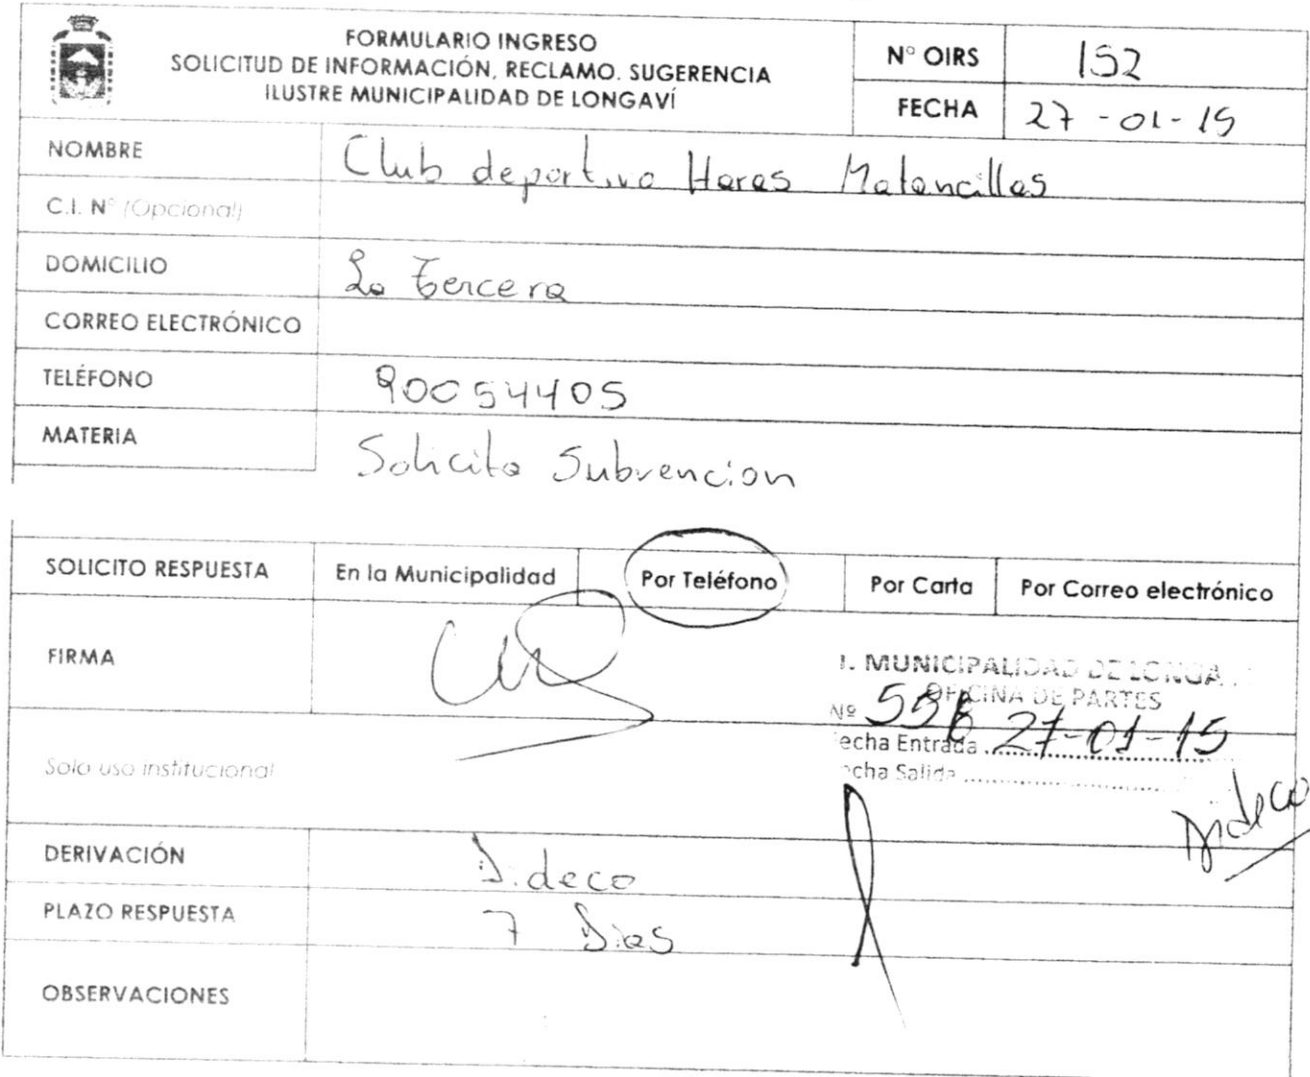 FORMULARIO INGRESO
SOLICITUD DE INFORMACIÓN, RECLAMO. SUGERENCIA
ILUSTRE MUNICIPALIDAD DE LONGAVÍ
N° OIRS 152
FECHA 27-01-15
NOMBRE Club deportivo Haras Matancillas
C.I. N° (Opcional)
DOMICILIO La Tercera
CORREO ELECTRÓNICO
TELÉFONO 90054405
MATERIA Solicita Subvencion
SOLICITO RESPUESTA En la Municipalidad Por Teléfono Por Carta Por Correo electrónico
FIRMA
I. MUNICIPALIDAD DE LONGA
OFICINA DE PARTES
Nº 556
echa Entrada 27-01-15
cha Salida
Solo uso institucional
Dideco
DERIVACIÓN Dideco
PLAZO RESPUESTA 7 Dias
OBSERVACIONES